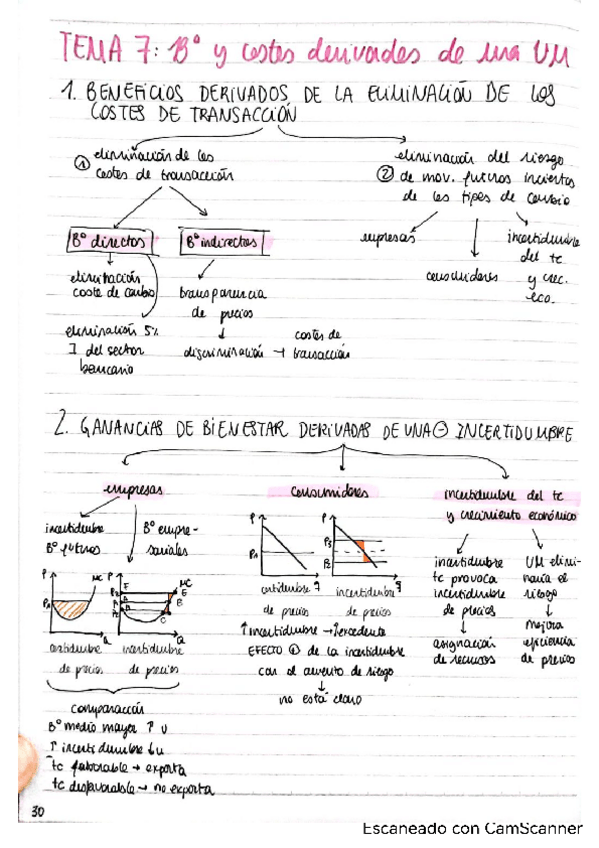 TEMA 7: Bº y costes derivados de una UM
1. BENEFICIOS DERIVADOS DE LA ELIMINACIÓN DE LOS
COSTES DE TRANSACCIÓN
① eliminación de los
costes de transacción
eliminación del riesgo
② de mov. futuros inciertos
de los tipos de cambio
Bº directos
Bº indirectos
empresas
consumidores
incertidumbre
del tc
y crec.
eco.
eliminación
coste de cambio
transparencia
de precios
eliminación 5%
I del sector
bancario
discriminación → costes de
transacción
2. GANANCIAS DE BIENESTAR DERIVADAS DE UNA ⊖ INCERTIDUMBRE
empresas
consumidores
incertidumbre del tc
y crecimiento económico
incertidumbre
Bº futuros
Bº empre-
sariales
incertidumbre
tc provoca
incertidumbre
de precios
asignación
de recursos
UM elimi-
naría el
riesgo
mejora
eficiencia
de precios
P MC Q
P MC Q
P q
P q
certidumbre
de precios
incertidumbre
de precios
certidumbre
de precios
incertidumbre
de precios
↑ incertidumbre → ↑ excedente
EFECTO ⊕ de la incertidumbre
con el aumento de riesgo
no está claro
comparación
Bº medio mayor ↑ U
↑ incertidumbre ↓ u
tc favorable → exporta
tc desfavorable → no exporta
30
Escaneado con CamScanner